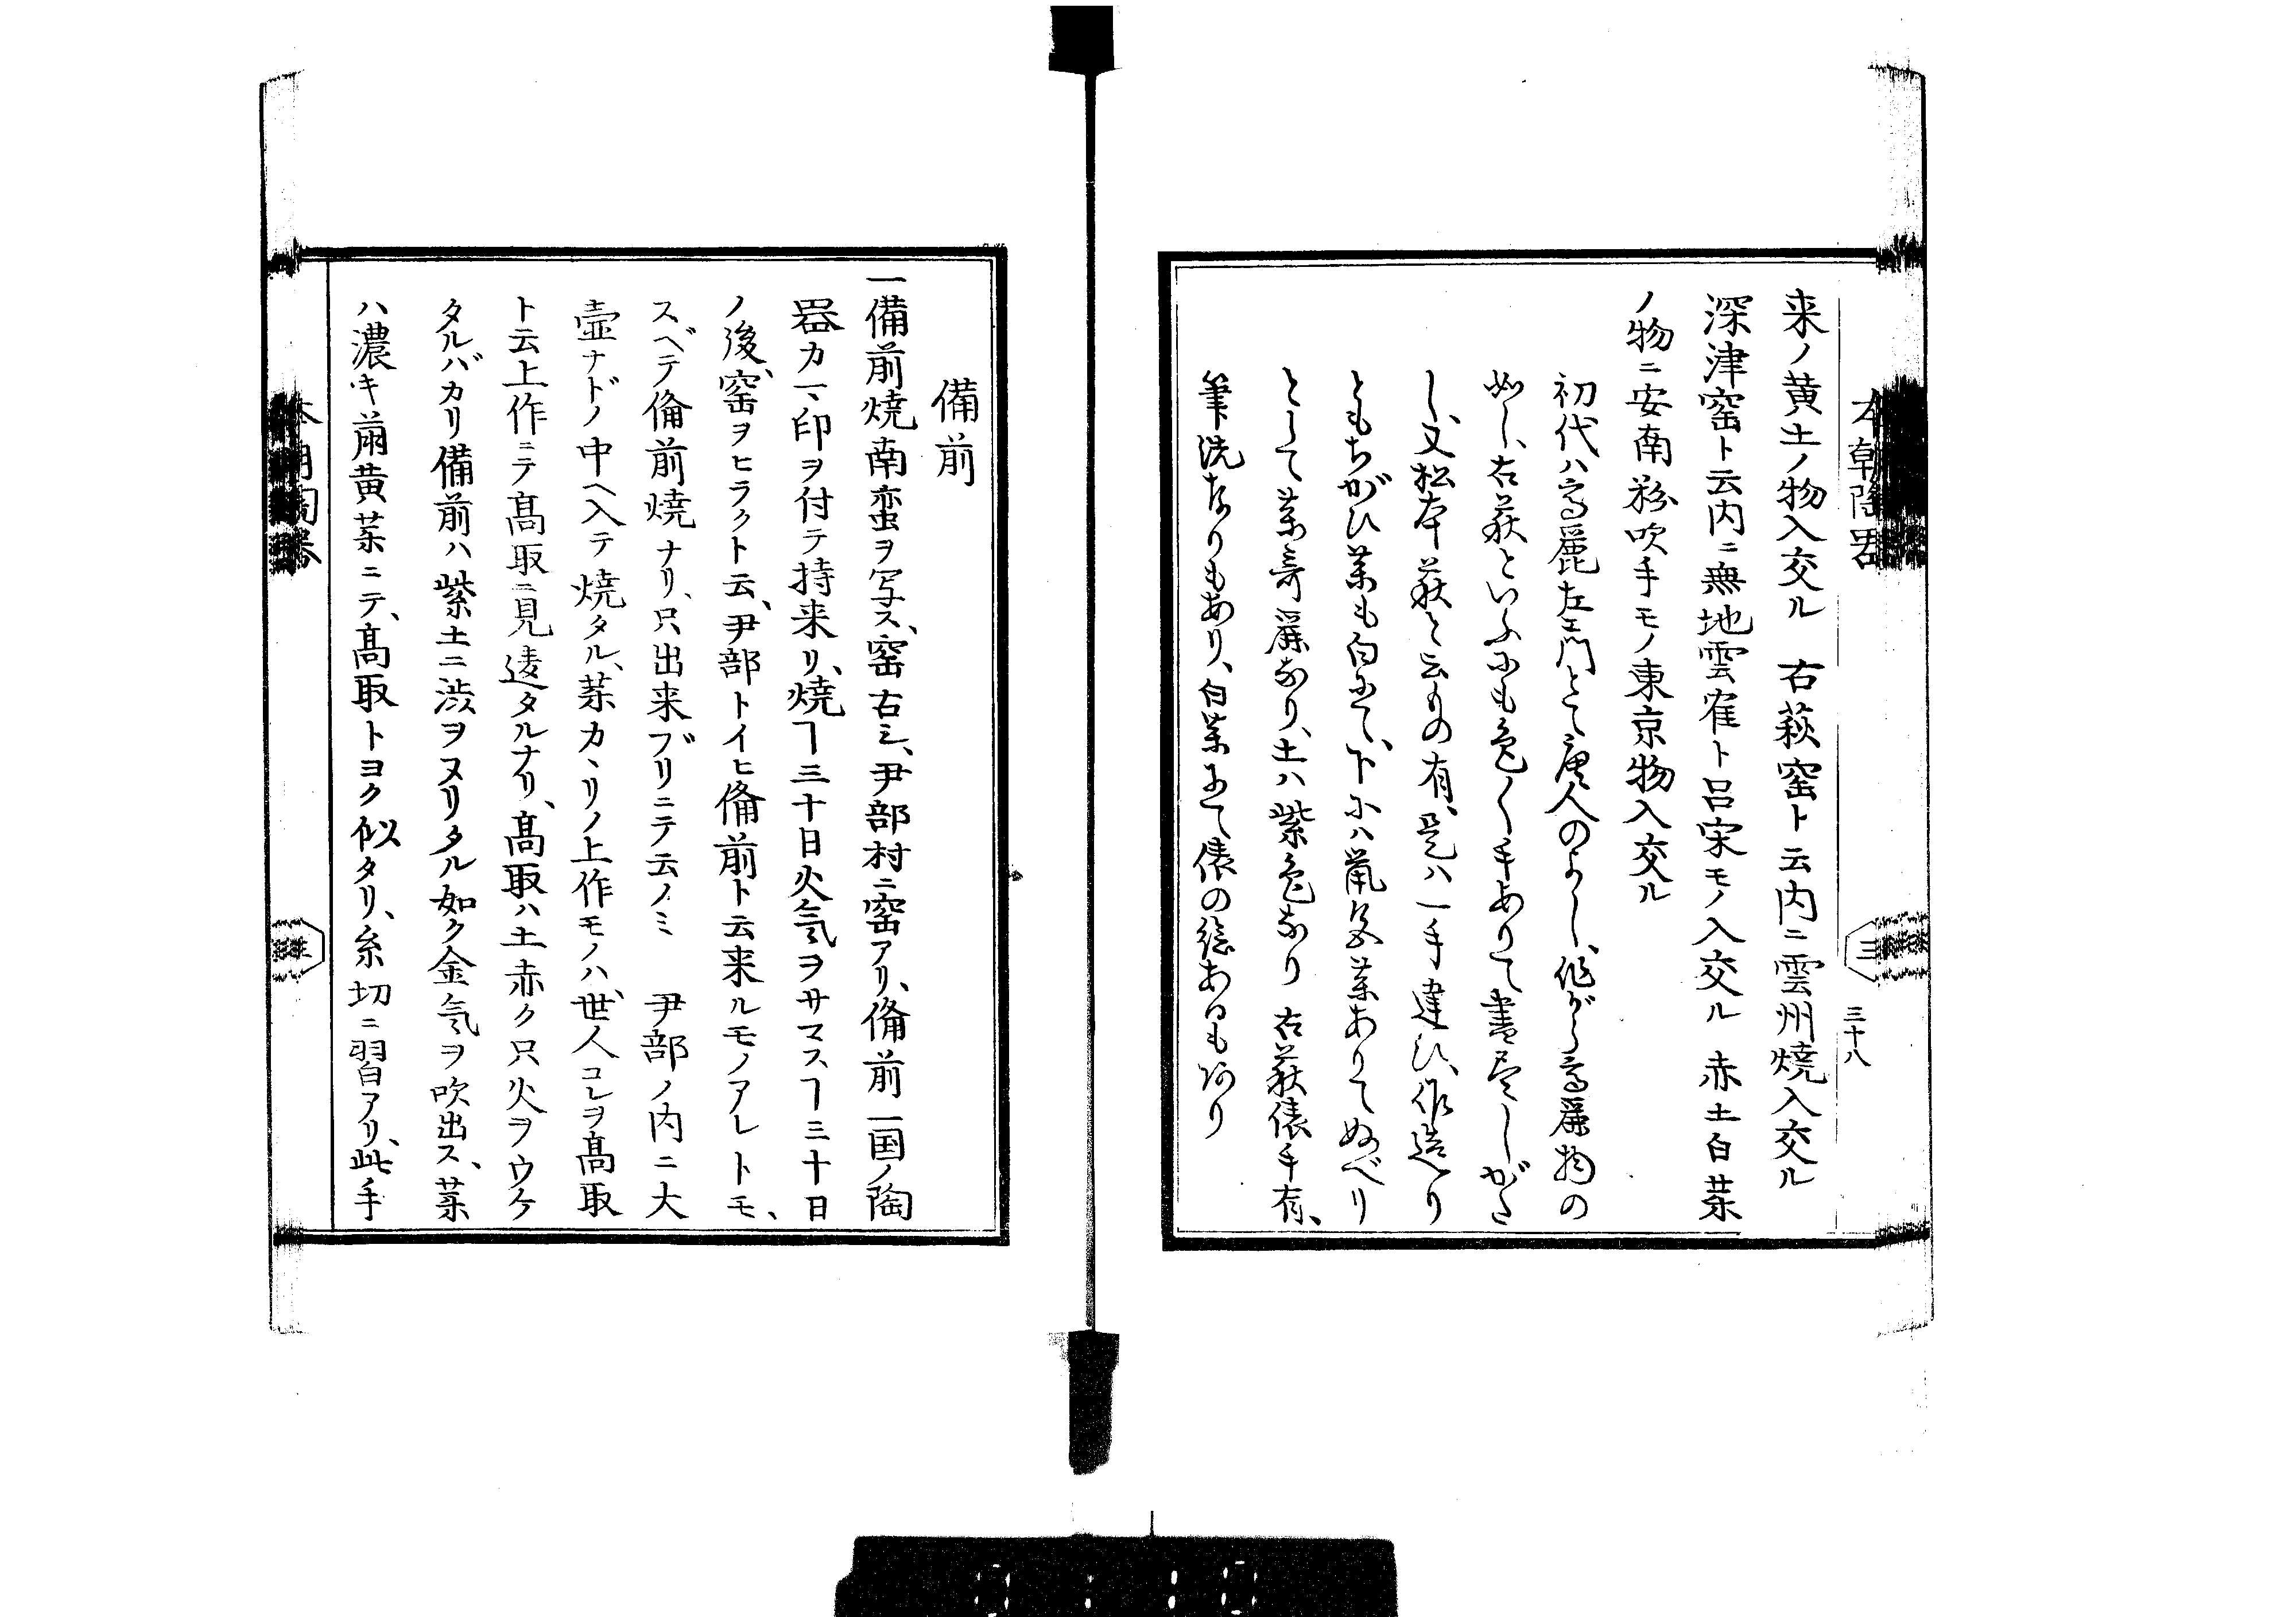 本朝陶器
三
三十八
来ノ黄土ノ物入交ル　右萩窑ト云内ニ雲州焼入交ル
深津窑ト云内ニ無地雲雀ト呂宋モノ入交ル　赤土白薬
ノ物ニ安南粉吹手モノ東京物入交ル
初代ハ高麗左エ門とて唐人のよし、作がら高麗物の
如し、古萩といふにも色〱手ありて書尽しがた
し、又松本萩と云もの有、是ハ一手違ひ、作造り
ともちがひ薬も白にて、下にハ鼠色薬ありてぬべり
として薬奇麗なり、土ハ紫色なり　古萩俵手有、
筆洗なりもあり、白薬にて俵の絵あるもあり
備前
一備前焼南蛮ヲ写ス、窑右ニ、尹部村ニ窑アリ、備前一国ノ陶
器カマ、印ヲ付テ持来リ、焼ヿ三十日火気ヲサマスヿ三十日
ノ後、窑ヲヒラクト云、尹部トイヒ備前ト云来ルモノアレトモ、
スベテ備前焼ナリ、只出来ブリニテ云ノミ　尹部ノ内ニ大
壺ナドノ中ヘ入テ焼タル、薬カヽリノ上作モノハ、世人コレヲ髙取
ト云上作ニテ髙取ニ見違タルナリ、髙取ハ土赤ク只火ヲウケ
タルバカリ備前ハ紫土ニ渋ヲヌリタル如ク金気ヲ吹出ス、薬
ハ濃キ萠黄薬ニテ、髙取トヨク似タリ、糸切ニ習アリ、此手
本朝陶器